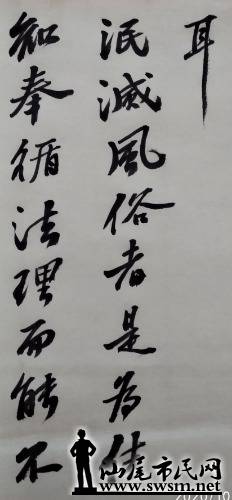 耳
泯滅風俗者是為佳
知奉循法理而能不
汕尾市民网
www.swsm.net
2020/10